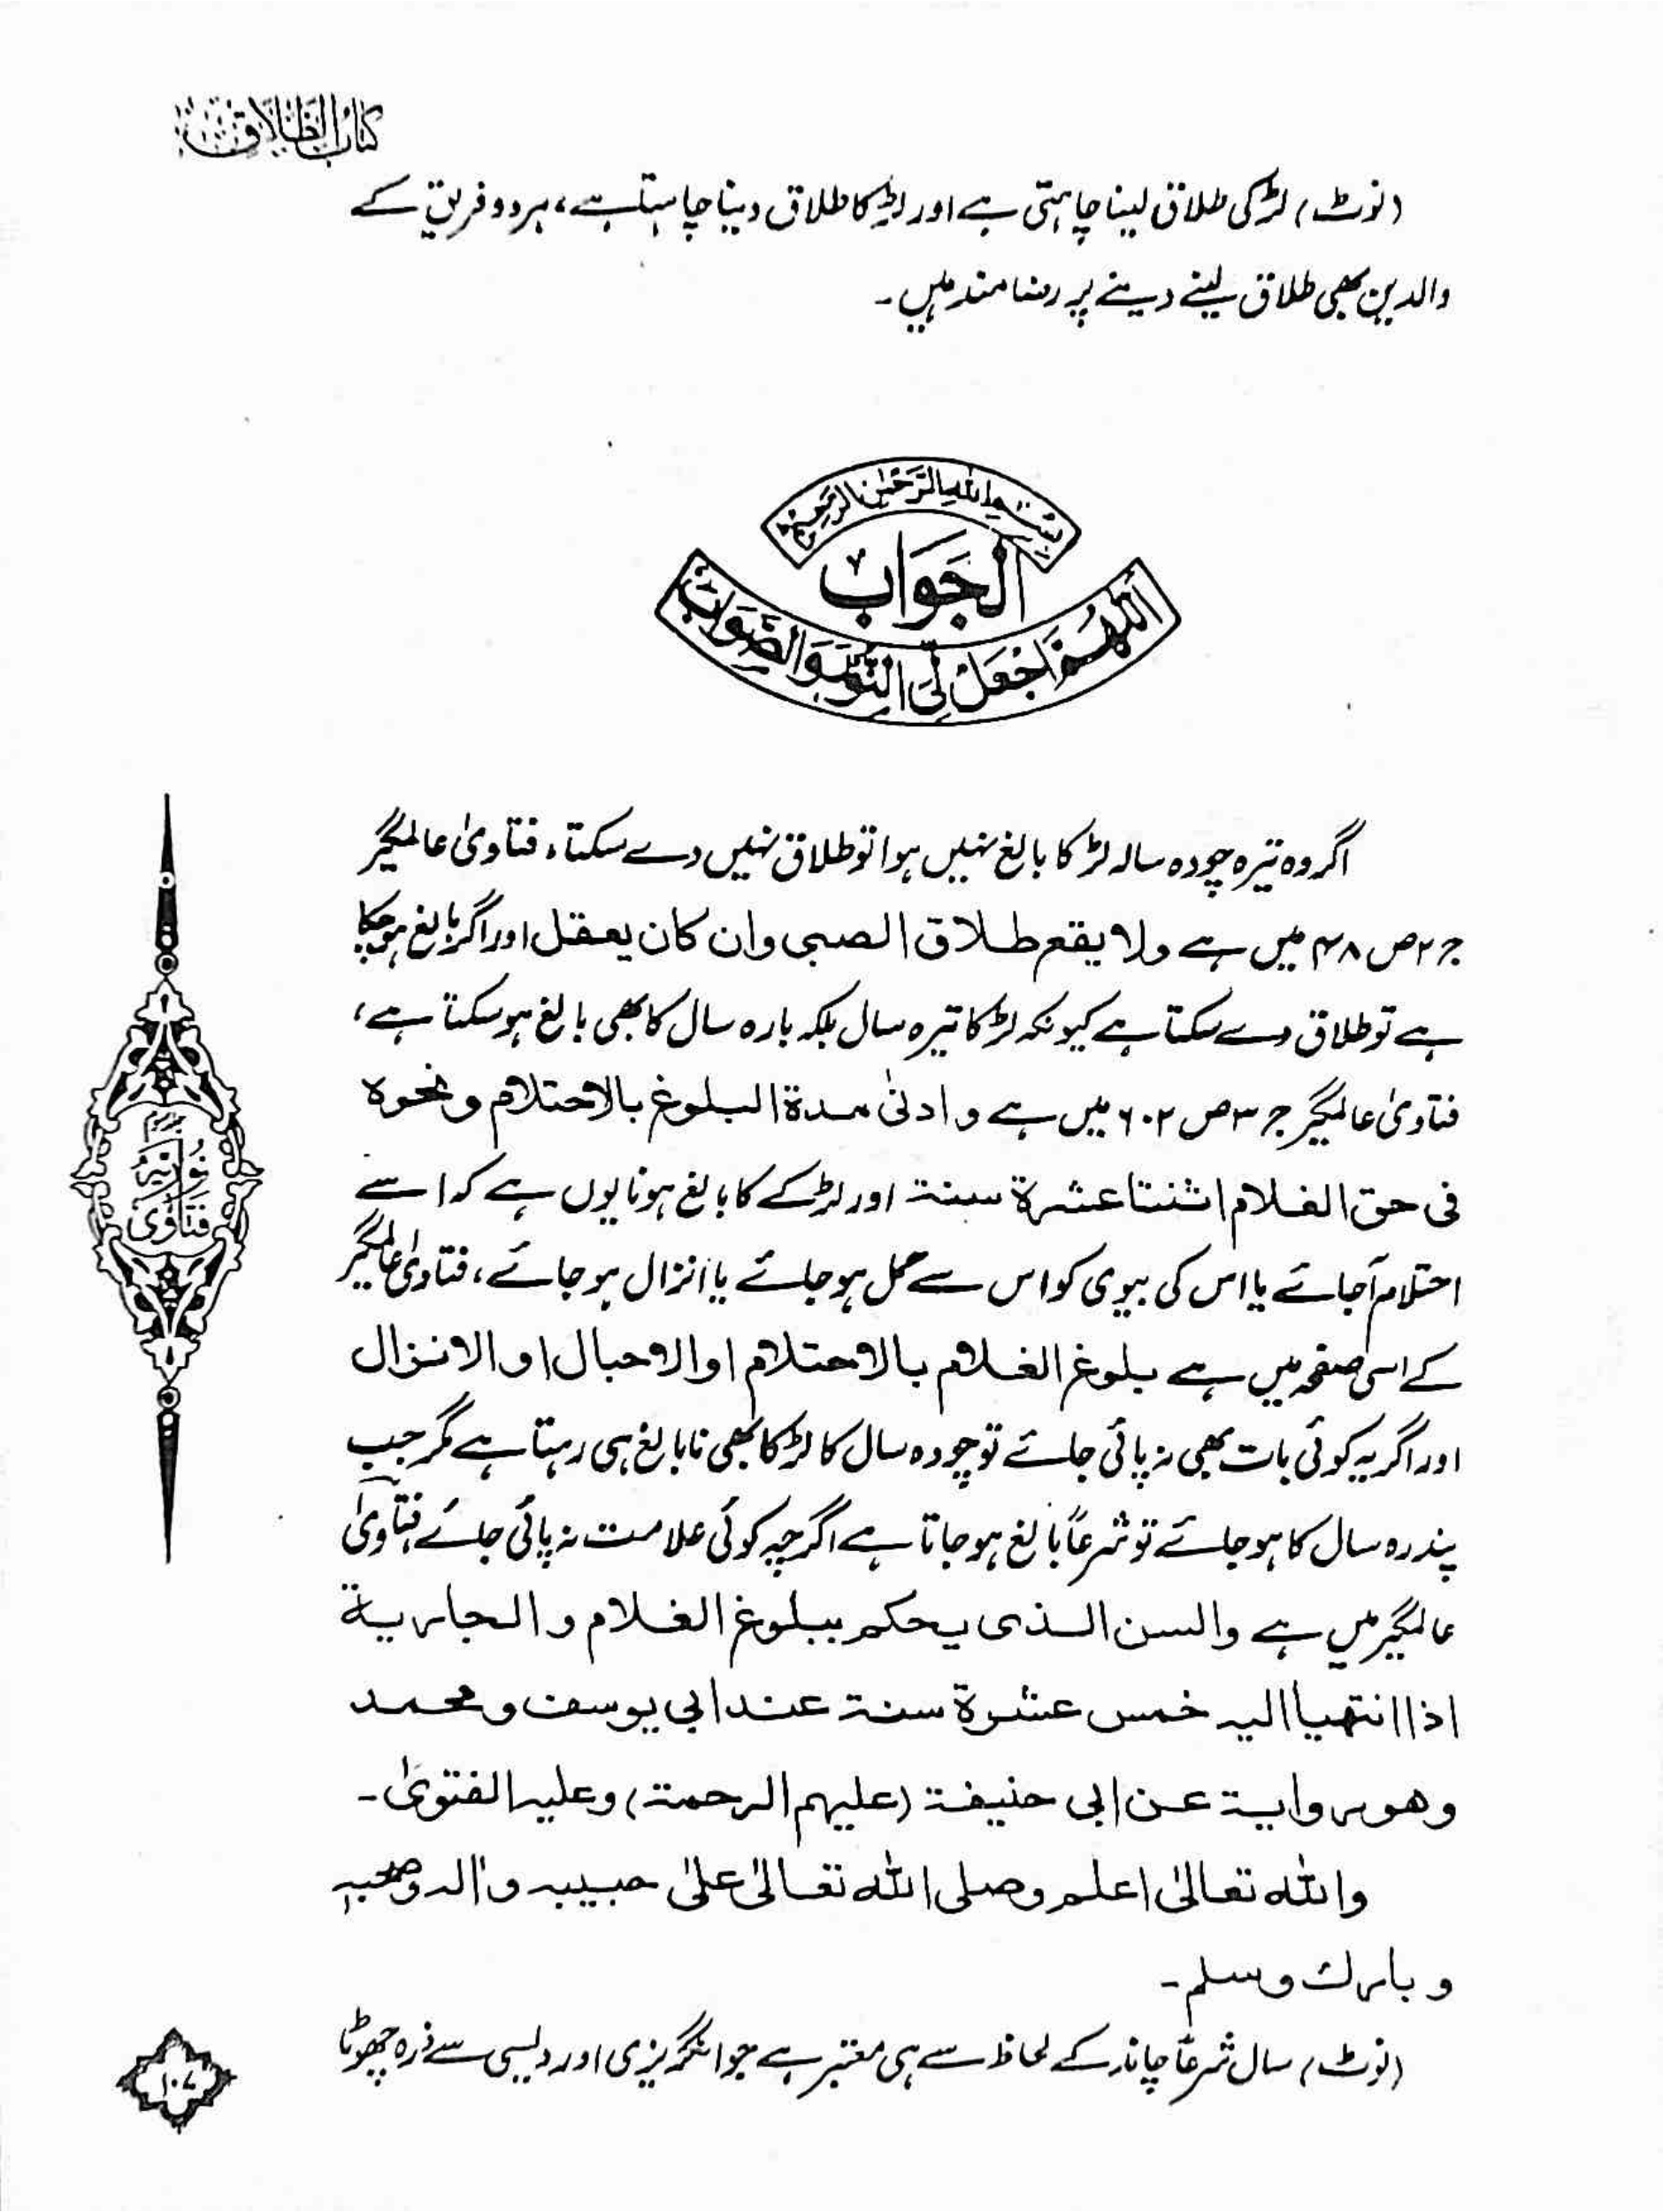 كتاب الطلاق
(نوٹ) لڑکی طلاق لینا چاہتی ہے اور لڑکا طلاق دینا چاہتا ہے، ہر دو فریق کے
والدین بھی طلاق لینے دینے پر رضامند ہیں۔
بسم الله الرحمن الرحيم
الجواب
اللهم اجعل لی النور والصواب
اگر وہ تیرہ چودہ سالہ لڑکا بالغ نہیں ہوا تو طلاق نہیں دے سکتا، فتاویٰ عالمگیر
ج ۲ ص ۴۸ میں ہے ولا یقع طلاق الصبی وان کان یعقل اور اگر بالغ ہو چکا
ہے تو طلاق دے سکتا ہے کیونکہ لڑکا تیرہ سال بلکہ بارہ سال کا بھی بالغ ہو سکتا ہے،
فتاویٰ عالمگیر ج ۳ ص ۶۰۲ میں ہے و ادنیٰ مدة البلوغ بالاحتلام و نحوہ
فی حق الغلام اثنتا عشرة سنة اور لڑکے کا بالغ ہونا یوں ہے کہ اسے
احتلام آجائے یا اس کی بیوی کو اس سے حمل ہو جائے یا انزال ہو جائے، فتاویٰ عالمگیر
کے اسی صفحہ میں ہے بلوغ الغلام بالاحتلام او الاحبال او الانزال
اور اگر یہ کوئی بات بھی نہ پائی جائے تو چودہ سال کا لڑکا بھی نابالغ ہی رہتا ہے مگر جب
پندرہ سال کا ہو جائے تو شرعاً بالغ ہو جاتا ہے اگرچہ کوئی علامت نہ پائی جائے، فتاویٰ
عالمگیر میں ہے والسن الذی یحکم ببلوغ الغلام و الجاریة
اذا انتهیا الیہ خمس عشرة سنة عند ابی یوسف و محمد
وهو روایة عن ابی حنیفة (علیہم الرحمة) و علیہ الفتویٰ۔
والله تعالیٰ اعلم و صلی الله تعالیٰ علیٰ حبیبہ و اٰلہ و صحبہ
و بارك و سلم۔
(نوٹ) سال شرعاً چاند کے لحاظ سے ہی معتبر ہے جو انگریزی اور دیسی سے ذرہ چھوٹا
فتاویٰ نوریہ
۱۰۷